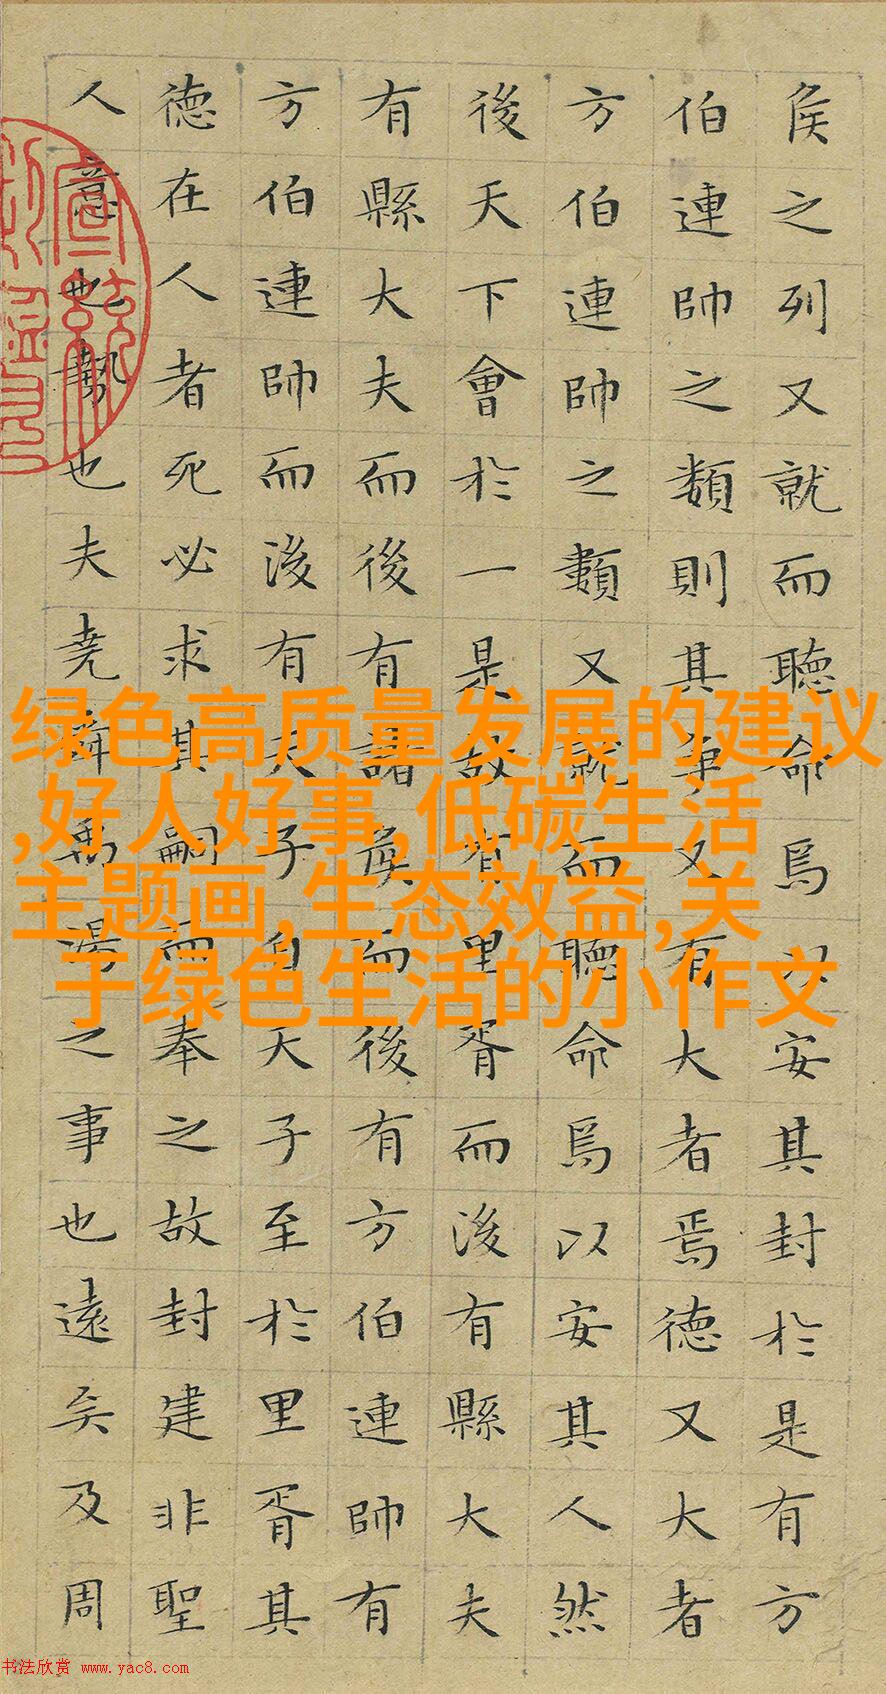 侯之列又就而聽命焉以安其封於是有方
伯連帥之類則其爭又有大者焉德又大者
方伯連帥之類又就而聽命焉以安其人然
後天下會於一是故有里胥而後有縣大夫
有縣大夫而後有諸侯而後有方伯連帥有
方伯連帥而後有天子自天子至於里胥其
德在人者死必求其嗣而奉之故封建非聖
人意也勢也夫堯舜禹湯之事也遠矣及周
绿色高质量发展的建议
,好人好事,低碳生活
主题画,生态效益,关
于绿色生活的小作文
书法欣赏 www.yac8.com